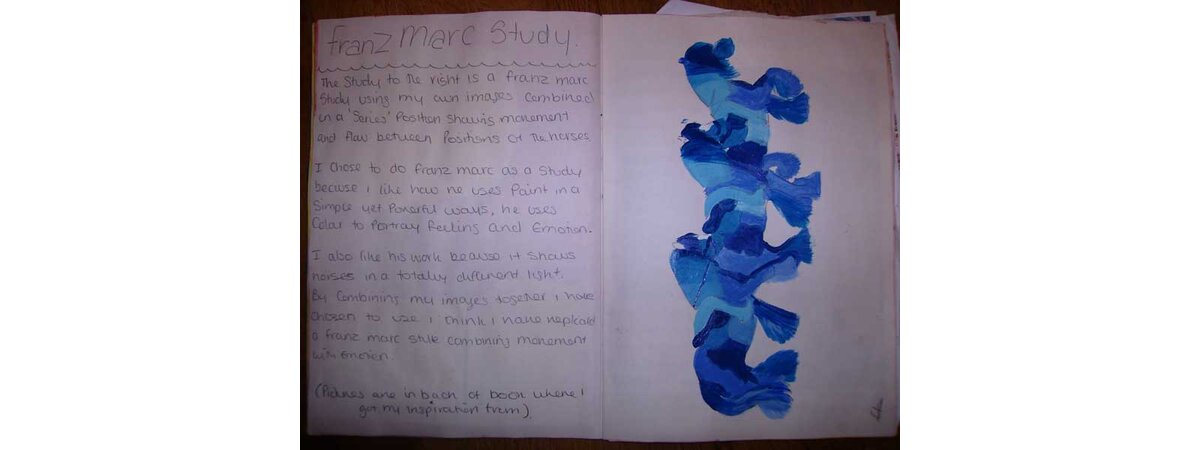 franz Marc Study.
The Study to the right is a franz marc
Study using my own images combined
in a 'Series' Position showing movement
and flow between Positions of the horses
I chose to do franz marc as a Study
because i like how he uses Paint in a
Simple yet Powerful ways, he uses
Color to Portray feeling and Emotion.
I also like his work because it shows
horses in a totally different light.
By Combining my images together i have
chosen to use i think i have
a franz marc style combining movement
with Emotion.
(Pictures are in back of book where I
got my inspiration from).